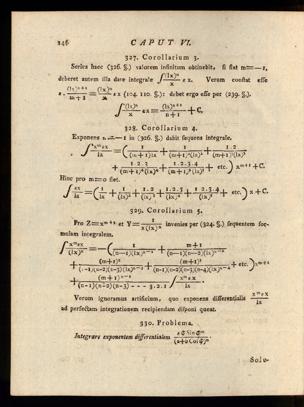 246 CAPUT VI.
327. Corollarium 3.
Series haec (326. §.) valorem infinitum obtinebit, si fiat m=—1,
deberet autem illa dare integrale ∫(lx)ⁿ/x εx. Verum constat esse
ε.(lx)ⁿ⁺¹/n+1 = (lx)ⁿ/x εx (104. 110. §.): debet ergo esse per (239. §.).
∫(lx)ⁿ/x εx = (lx)ⁿ⁺¹/n+1 + C.
328. Corollarium 4.
Exponens n=—1 in (326. §.) dabit sequens integrale.
∫xᵐεx/lx = (1/(m+1)lx + 1/(m+1)²(lx)² + 1.2/(m+1)³(lx)³
+ 1.2.3/(m+1)⁴(lx)⁴ + 1.2.3.4/(m+1)⁵(lx)⁵ + etc.) xᵐ⁺¹ + C.
Hinc pro m=0 fiet.
∫εx/lx = (1/lx + 1/(lx)² + 1.2/(lx)³ + 1.2.3/(lx)⁴ + 1.2.3.4/(lx)⁵ + etc.) x + C.
329. Corollarium 5.
Pro Z=xᵐ⁺¹ et Y=1/x(lx)ⁿ invenies per (324. §.) sequentem for-
mulam integralem.
∫xᵐεx/(lx)ⁿ = —(1/(n—1)(lx)ⁿ⁻¹ + m+1/(n—1)(n—2)(lx)ⁿ⁻²
+ (m+1)²/(n—1)(n—2)(n—3)(lx)ⁿ⁻³ + (m+1)³/(n—1)(n—2)(n—3)(n—4)(lx)ⁿ⁻⁴ + etc.) xᵐ⁺¹
+ (m+1)ⁿ⁻¹/(n—1)(n—2)(n—3) - - - 3.2.1 ∫xᵐεx/lx.
Verum ignoramus artificium, quo exponens differentialis xᵐεx/lx
ad perfectam integrationem recipiendam disponi queat.
330. Problema.
Integrare exponentem differentialem
Solv-